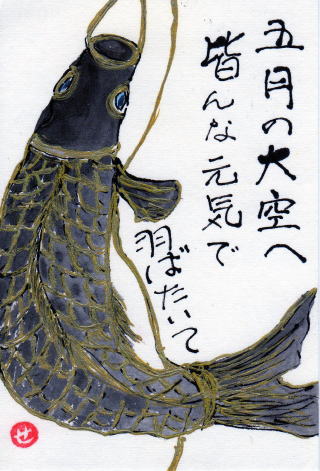 五月の大空へ
皆んな元気で
羽ばたいて
せ